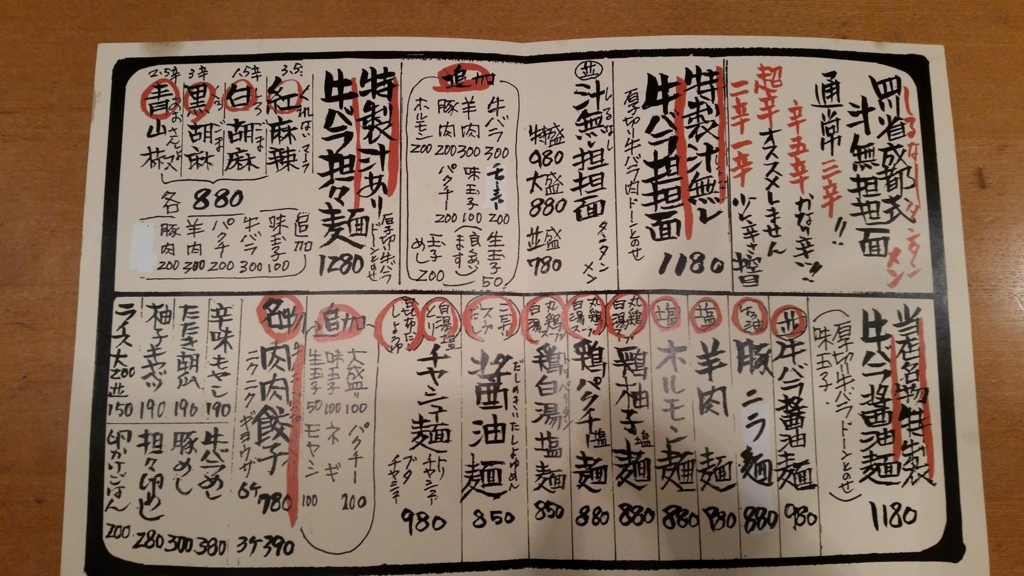 四省成都衣
しるなしタンタンメン
汁無担担面
通常三辛!!
辛五辛
かなり辛い!!
超辛オススメしません
二辛一辛
少し辛
特製汁無し
牛バラ担担面
厚切り牛バラ肉ドーンとのせ
1180
並
汁無し担担面
タンタンメン
特盛 980
大盛 880
並盛 780
追加
牛バラ 300
羊肉 300
豚肉 200
ホルモン 200
味玉子 100
パクチー 200
生玉子 50
玉子めし 200
特製汁あり
牛バラ担々麺
厚切り牛バラドーンとのせ
1280
3.5
紅麻辣
1.5辛
白胡麻
3辛
黒胡麻
2.5辛
青山椒
各 880
追加
味玉子 100
牛バラ 300
パクチー 200
羊肉 300
豚肉 200
当店名物
牛バラ醤油麺
厚切り牛バラドーンとのせ
味玉子
1180
並
牛バラ醤油麺
980
豚ニラ麺
880
塩
羊肉麺
980
塩
ホルモン麺
880
丸鶏白湯
鶏柚子塩麺
880
丸鶏白湯
鶏パクチー塩麺
880
丸鶏白湯
鶏白湯塩麺
850
醤油麺
850
チャーシュー麺
980
追加
大盛り 100
味玉子 100
生玉子 50
パクチー 200
ネギ
モヤシ 100
名物
肉肉餃子
ニクニクギョウザ
6ケ 780
3ケ 390
辛味もやし 190
たたき胡瓜 190
柚子キャベツ 190
ライス 大200 並150
牛バラめし 380
豚めし 300
担々卵めし 280
卵かけごはん 200